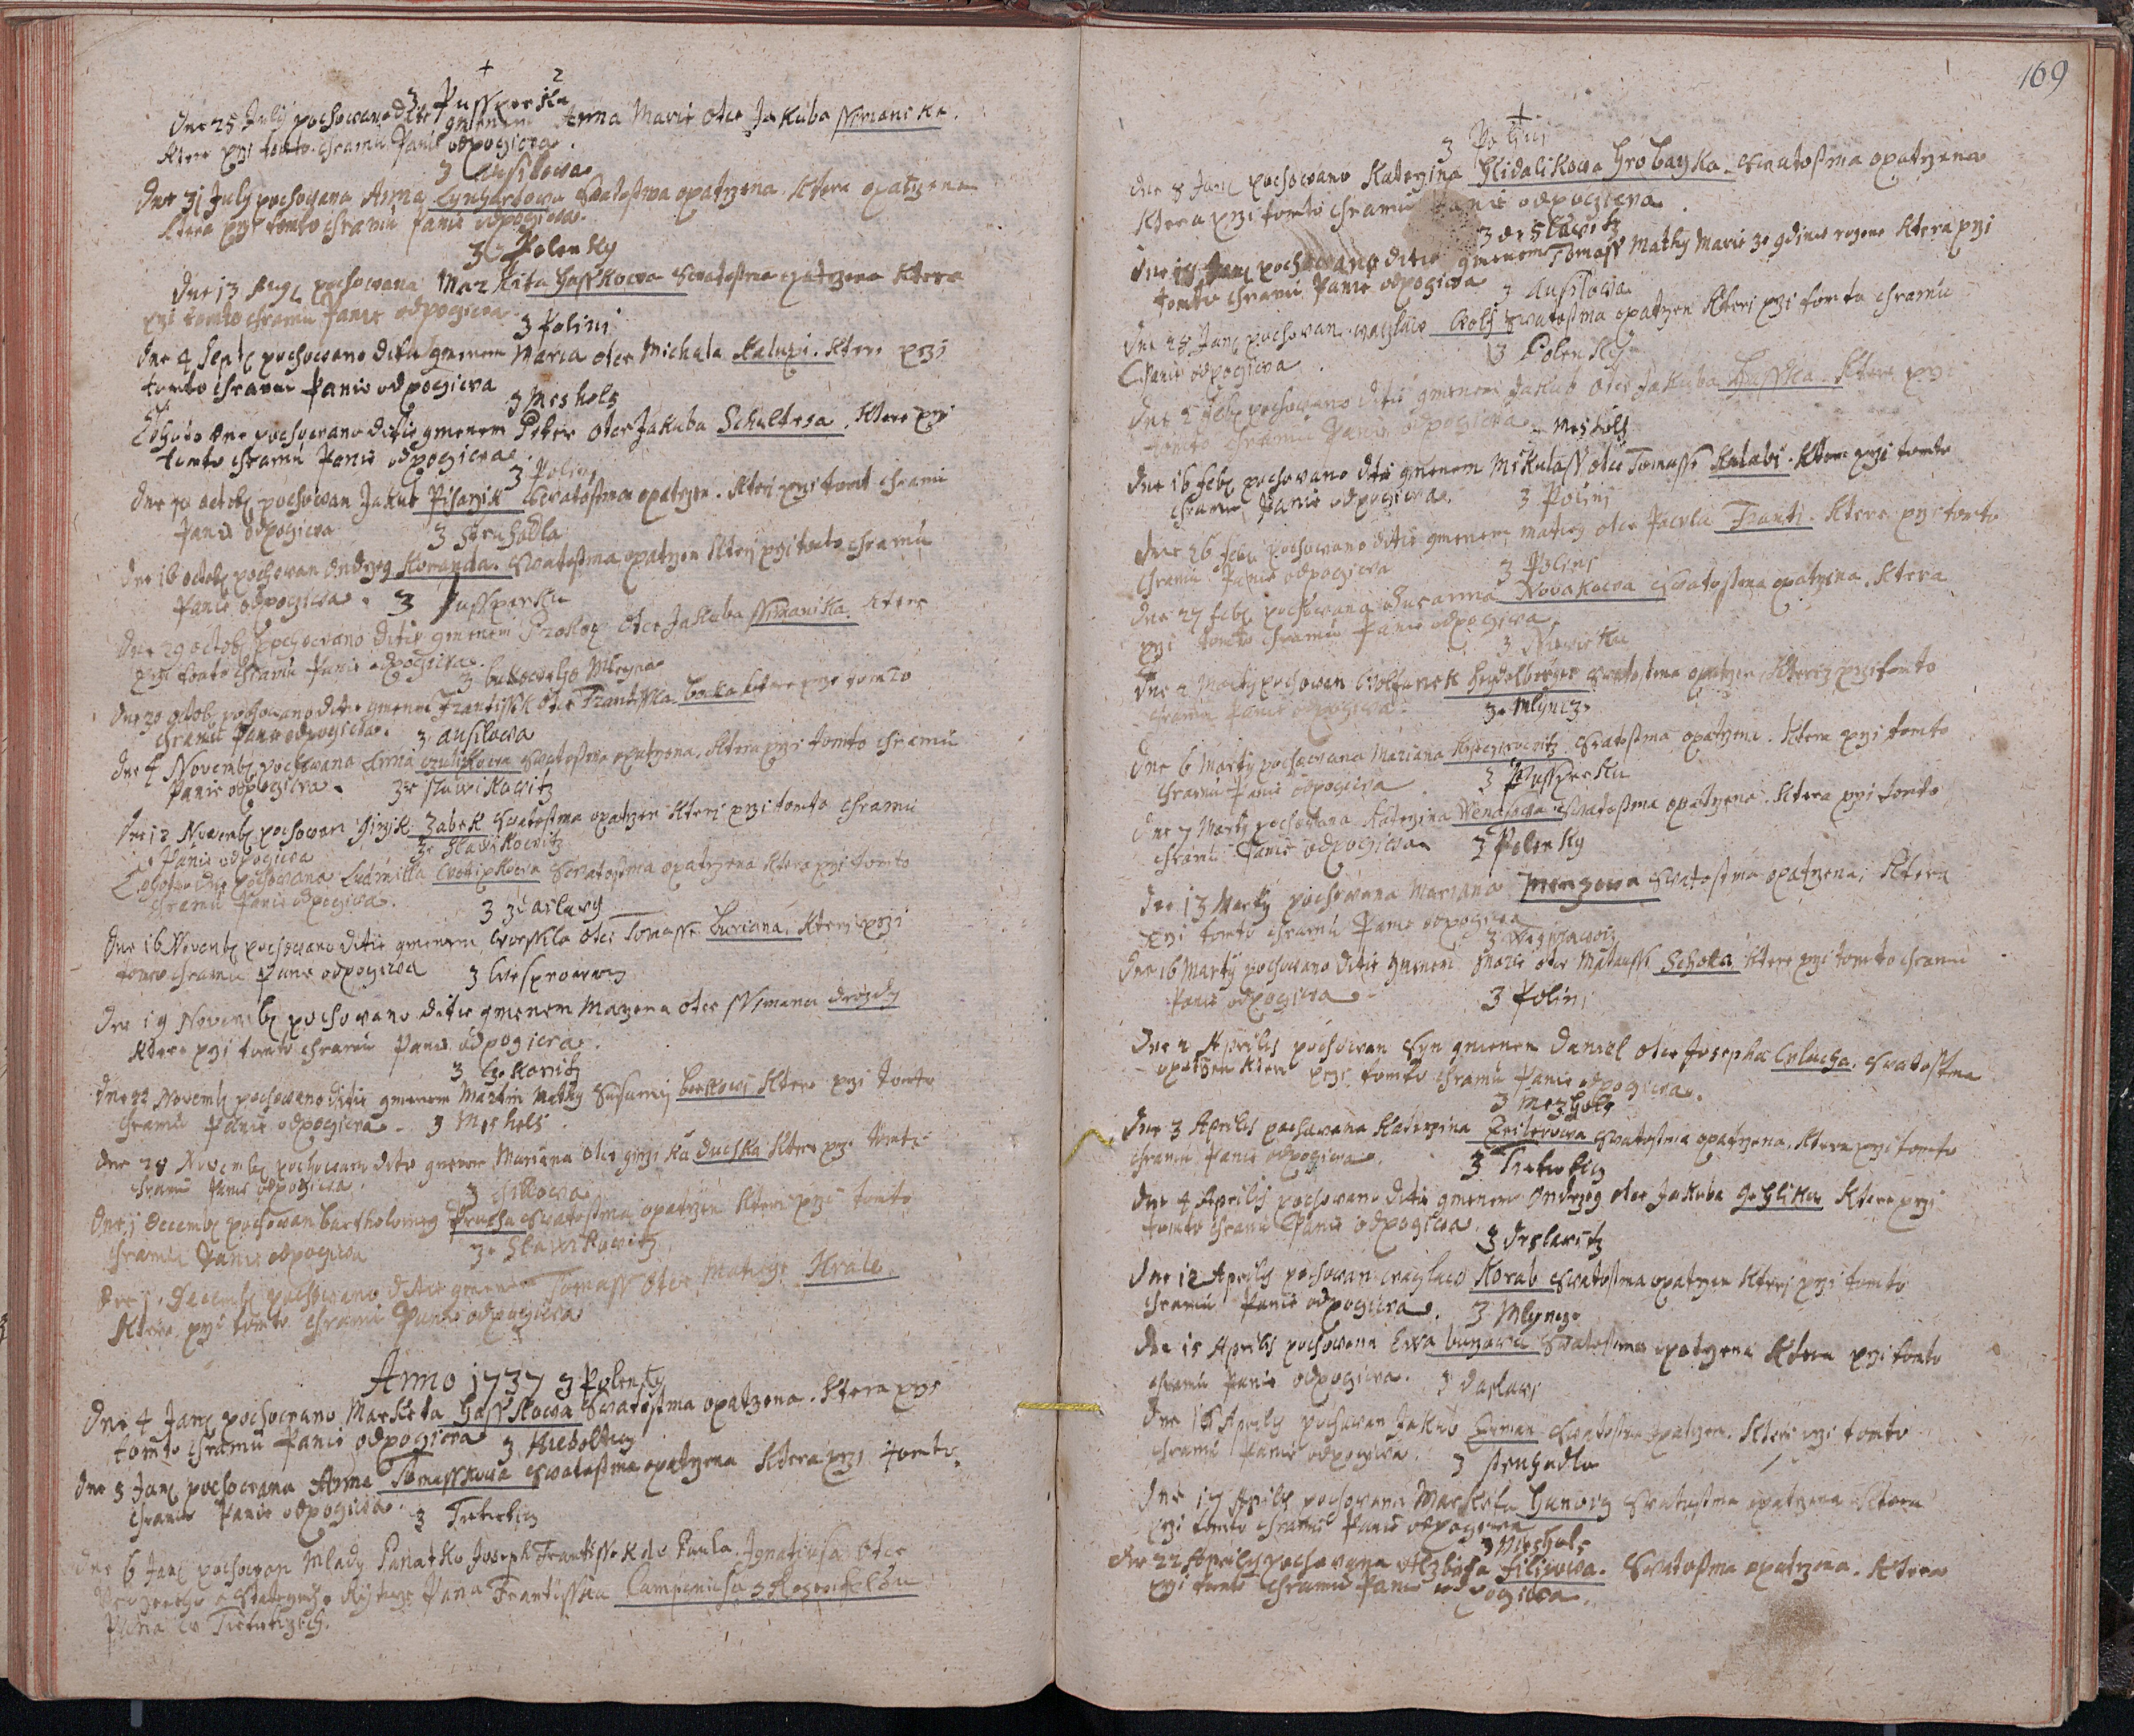 z Pusspersku
Dne 25 July pochowano ditie gmenem Anna Marie otce Jakuba Ssimanika.
Ktere przi tomto chramu Panie odpogiwa.
z Ausilowa
Dne 31 July pochowana Anna Lynhartowa Swatostma opatrzena Ktera opatrzena
Ktera przi tomto chramu Panie odpogiwa.
z Polenky
Dne 13 Aug pochowana Markita Hasskowa Swatostma opatrzena Ktera
przi tomto chramu Panie odpogiwa
z Polini
Dne 4 Septe pochowano ditie gmenem Maria otce Michala Kalupi. Ktere przi
tomto chramu Panie odpogiwa
z Mesholz
Tehoto dne pochowano ditie gmenem Peter otce Jakuba Schultesa. Ktere przi
tomto chramu Panie odpogiwa
z Polini
Dne 10 octob pochowan Jakub Pisarzik Swatostma opatrzen. Kteri przi tomto chramu
Panie odpogiwa
z Struhadla
Dne 16 octob pochowan Ondrzeg Koranda. Swatostma opatrzen Kteri przi tomto chramu
Panie odpogiwa.
z Pussperku
Dne 29 octob pochowano ditie gmenem Prokop otce Jakuba Ssimanika. Ktere
przi tomto chramu Panie odpogiwa.
z bukoweho Mleyna
Dne 30 octob pochowano ditie gmenem Frantissk otce Frantisska Ktere przi tomto
chramu Panie odpogiwa.
z Ausilowa
Dne 4 Novemb pochowana Anna Swatostma opatrzena, Ktera przi tomto chramu
Panie odpogiwa.
ze Slawikowitz
Dne 12 Novemb pochowan Girzik Zabek Swatostma opatrzen Kteri przi tomto chramu
Panie odpogiwa
ze Slawikowitz
Tehoto dne pochowana Ludmilla Swatostma opatrzena Ktera przi tomto
chramu Panie odpogiwa.
z Zdaslawy
Dne 16 Novemb pochowano ditie gmenem Worssila otce Tomasse Buriana. Ktere przi
tomto chramu Panie odpogiwa
Dne 19 Novemb pochowano ditie gmenem Mazena otce Ssimana drozdy
Ktere przi tomto chramu Panie odpogiwa.
Dne 22 Novemb pochowano ditie gmenem Martin Mathy Susanny Ktere przi tomto
chramu Panie odpogiwa.
z Mesholz
Dne 28 Novemb pochowano ditie gmenem Mariana otce girzika duchka Ktere przi tomto
chramu Panie odpogiwa.
Dne 1 Decemb pochowan Bartholomeg Prucha Swatostma opatrzen Kteri przi tomto
chramu Panie odpogiwa
ze Slawikowitz
Dne 1. Decemb pochowano ditie gmenem Tomass otce Matiege Krale.
Ktere przi tomto chramu Panie odpogiwa
Anno 1737 z Polenky
Dne 4 Jan pochowano Marketa Hasskowa Swatostma opatrzena. Ktera przi
tomto chramu Panie odpogiwa
Dne 5 Jan pochowana Anna Tomasskowa Swatostma opatrzena Ktera przi tomto
chramu Panie odpogiwa.
z Tietietitz
Dne 6 Jan pochowan Mlady Panatko Joseph Frantissek de Paula. Ignatiusa otce
Urozeneho a Stateczneho Rytirze Pana Frantisska Campanusa z Rosenfeldu
Pana w Tietietitzych.
169
z Polini
Dne 8 Jan pochowano Katerzina Hlidalikowa Hrobarzka. Swatostma opatrzena
Ktera przi tomto chramu Panie odpogiwa.
z deslawitz
Dne 18 Jan pochowano ditie gmenem Tomass Mathy Marie Ktera przi
tomto chramu Panie odpogiwa
z Ausilowa
Dne 25 Jan pochowan waczlaw Wolf Swatostma opatrzen Kteri przi tomto chramu
Panie odpogiwa.
z Polenky
Dne 2 Feb pochowano ditie gmenem Jakub otce Jakuba Husska. Ktere przi
tomto chramu Panie odpogiwa.
z Mesholz
Dne 16 Feb pochowano ditie gmenem Mikulass otce Tomasse Kalabi. Ktere przi tomto
chramu Panie odpogiwa.
z Polini
Dne 26 Feb pochowano ditie gmenem Matieg otce Pawla Franti. Ktere przi tomto
chramu Panie odpogiwa
z Polini
Dne 27 Feb pochowana Susanna Novakowa Swatostma opatrzena. Ktera
przi tomto chramu Panie odpogiwa
Dne 2 Marty pochowan Wolfanck Heydelberger Swatostma opatrzen, Kteri przi tomto
chramu Panie odpogiwa.
z Mlyncze
Dne 6 Marty pochowana Mariana Swatostma opatrzena. Ktera przi tomto
chramu Panie odpogiwa
z Pussperku
Dne 7 Marty pochowana Katerzina Swatostma opatrzena. Ktera przi tomto
chramu Panie odpogiwa
z Polenky
Dne 13 Marty pochowana Mariana Menzowa Swatostma opatrzena, Ktera
przi tomto chramu Panie odpogiwa
Dne 16 Marty pochowano ditie gmenem Marie otce Matausse Schota Ktere przi tomto chramu
Panie odpogiwa.
z Polini
Dne 2 Aprilis pochowan Syn gmenem Daniel otce Josepha Swatostma
opatrzen Kteri przi tomto chramu Panie odpogiwa.
z Mezholz
Dne 3 Aprilis pochowana Katerzina Swatostma opatrzena. Ktera przi tomto
chramu Panie odpogiwa.
z Tietietitz
Dne 4 Aprilis pochowano ditie gmenem Ondrzeg otce Jakuba Gehlika Ktere przi
tomto chramu Panie odpogiwa.
z deslawitz
Dne 12 Aprilis pochowan waczlaw Korab Swatostma opatrzen Kteri przi tomto
chramu Panie odpogiwa.
z Mlyncze
Dne 15 Aprilis pochowana Ewa Swatostma opatrzena Ktera przi tomto
chramu Panie odpogiwa.
z daslawi
Dne 16 Aprilis pochowan Jakub Swatostma opatrzen. Kteri przi tomto
chramu Panie odpogiwa.
z Struhadla
Dne 17 Aprilis pochowana Marketa Swatostma opatrzena Ktera
przi tomto chramu Panie odpogiwa
z Mesholz
Dne 22 Aprilis pochowana Alzbieta Filipowa. Swatostma opatrzena. Ktera
przi tomto chramu Panie odpogiwa.